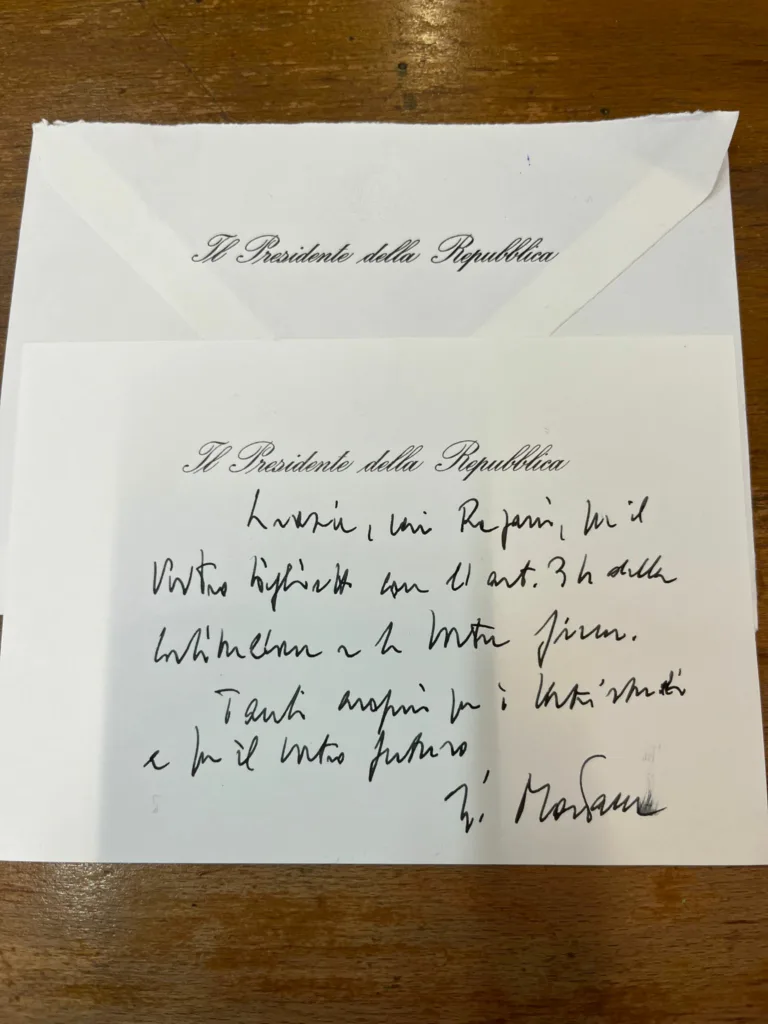 Il Presidente della Repubblica
Il Presidente della Repubblica
Grazie, cari Ragazzi, per il
Vostro biglietto con l'art. 34 della
Costituzione e le Vostre firme.
Tanti auguri per i Vostri studi
e per il vostro futuro